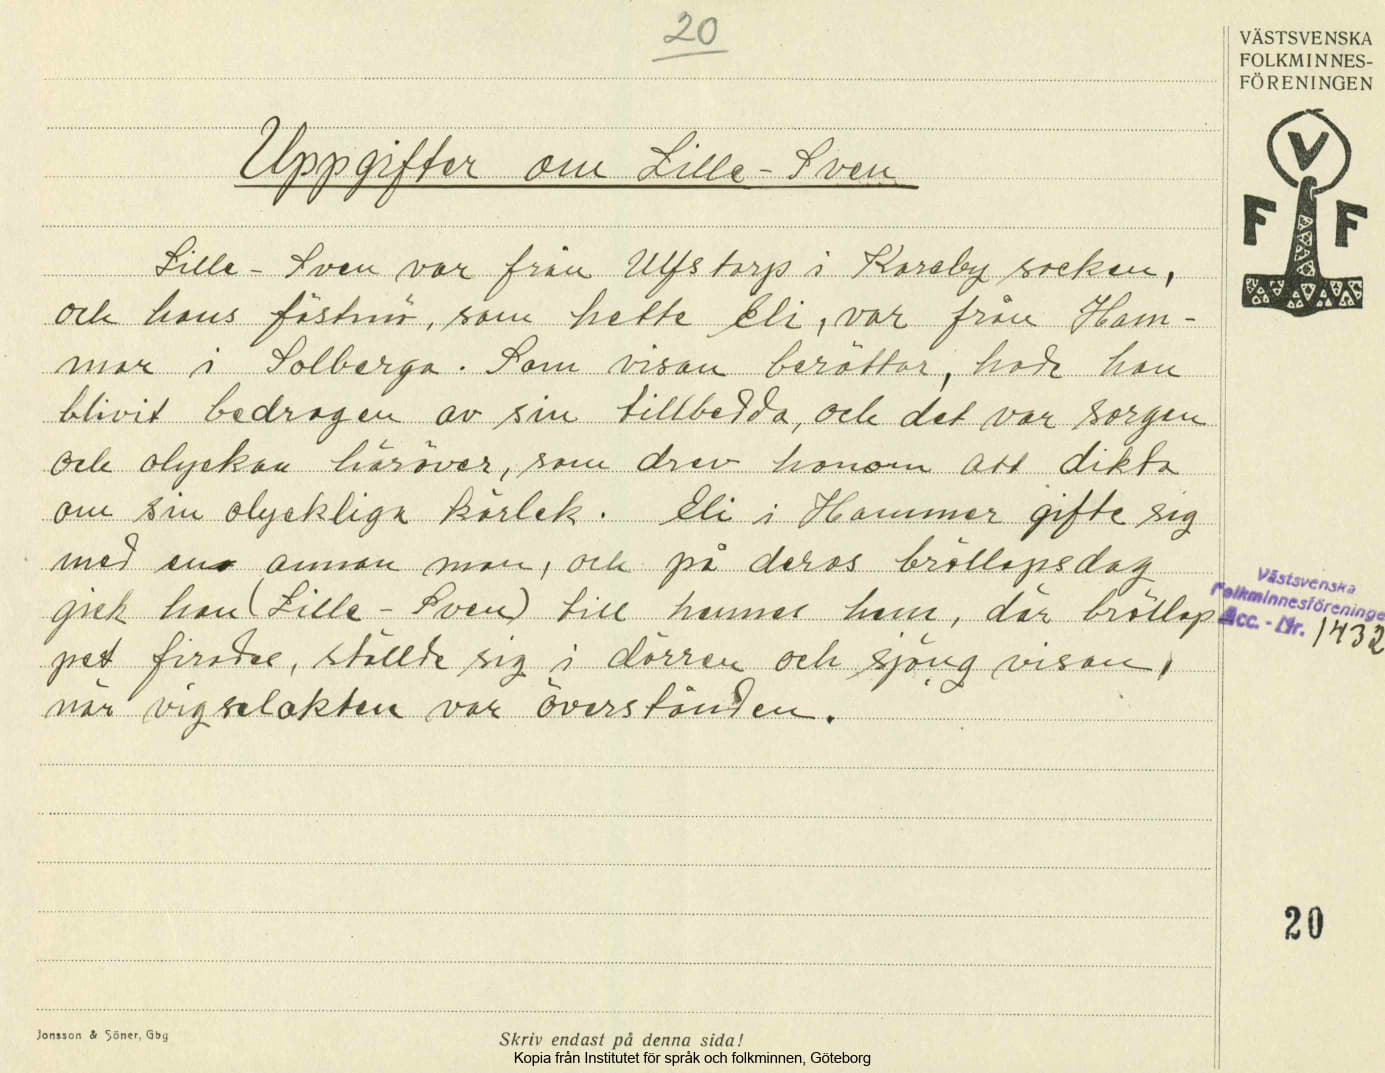 20
VÄSTSVENSKA
FOLKMINNES-
FÖRENINGEN
V
F F
Uppgifter om Lille-Sven
Lille-Sven var från Ulfstorp i Kareby socken,
och hans fästmö, som hette Eli, var från Ham-
mar i Solberga. Som visan berättar, hade han
blivit bedragen av sin tillbedda, och det var sorgen
och olyckan häröver, som drev honom att dikta
om sin olyckliga kärlek. Eli i Hammer gifte sig
med en annan man, och på deras bröllopsdag
gick han (Lille-Sven) till hennes hem, där bröllop
pet firades, ställde sig i dörren och sjöng visan,
när vigselakten var överstånden.
Västsvenska
Folkminnesföreningen
Acc.-Nr. 1432
20
Jonsson & Söner, Gbg
Skriv endast på denna sida!
Kopia från Institutet för språk och folkminnen, Göteborg